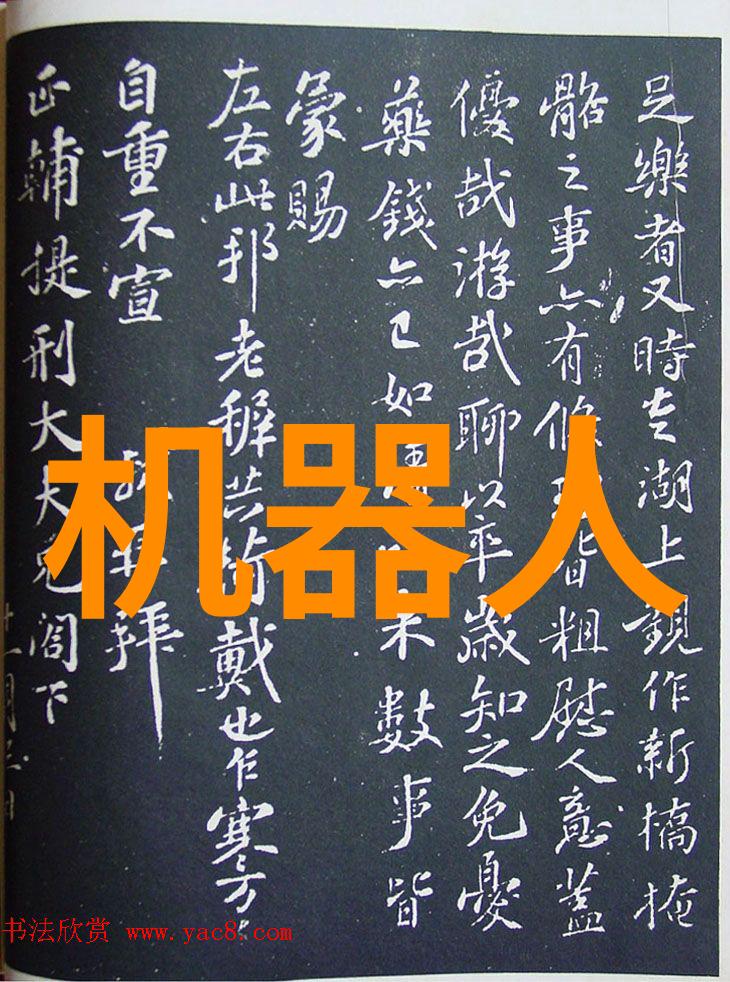 足樂者又時走湖上觀作新橋掩
骼之事亦有條皆粗慰人意蓋
優哉游哉聊以卒歲知之免憂
藥錢亦已如来數事皆
蒙賜
左右此邦老稺共荷戴也乍寒万〻
自重不宣 拜
正輔提刑大夫兄閣下
十一月三日
机器人
书法欣赏 www.yac8.com